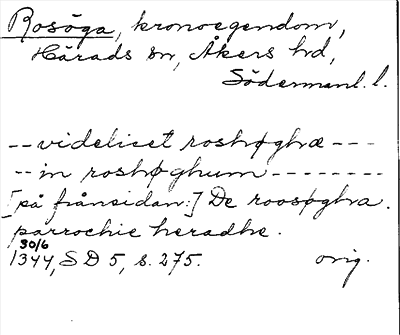 Rosöga, kronoegendom,
Härads sn, Åkers hd,
Södermanl. l.
-- videliset roshøghæ ---
-- in roshøghum --------
[på frånsidan:] De roosøghra.
parrochie heradhe.
30/6
1344, SD 5, s. 275. orig.